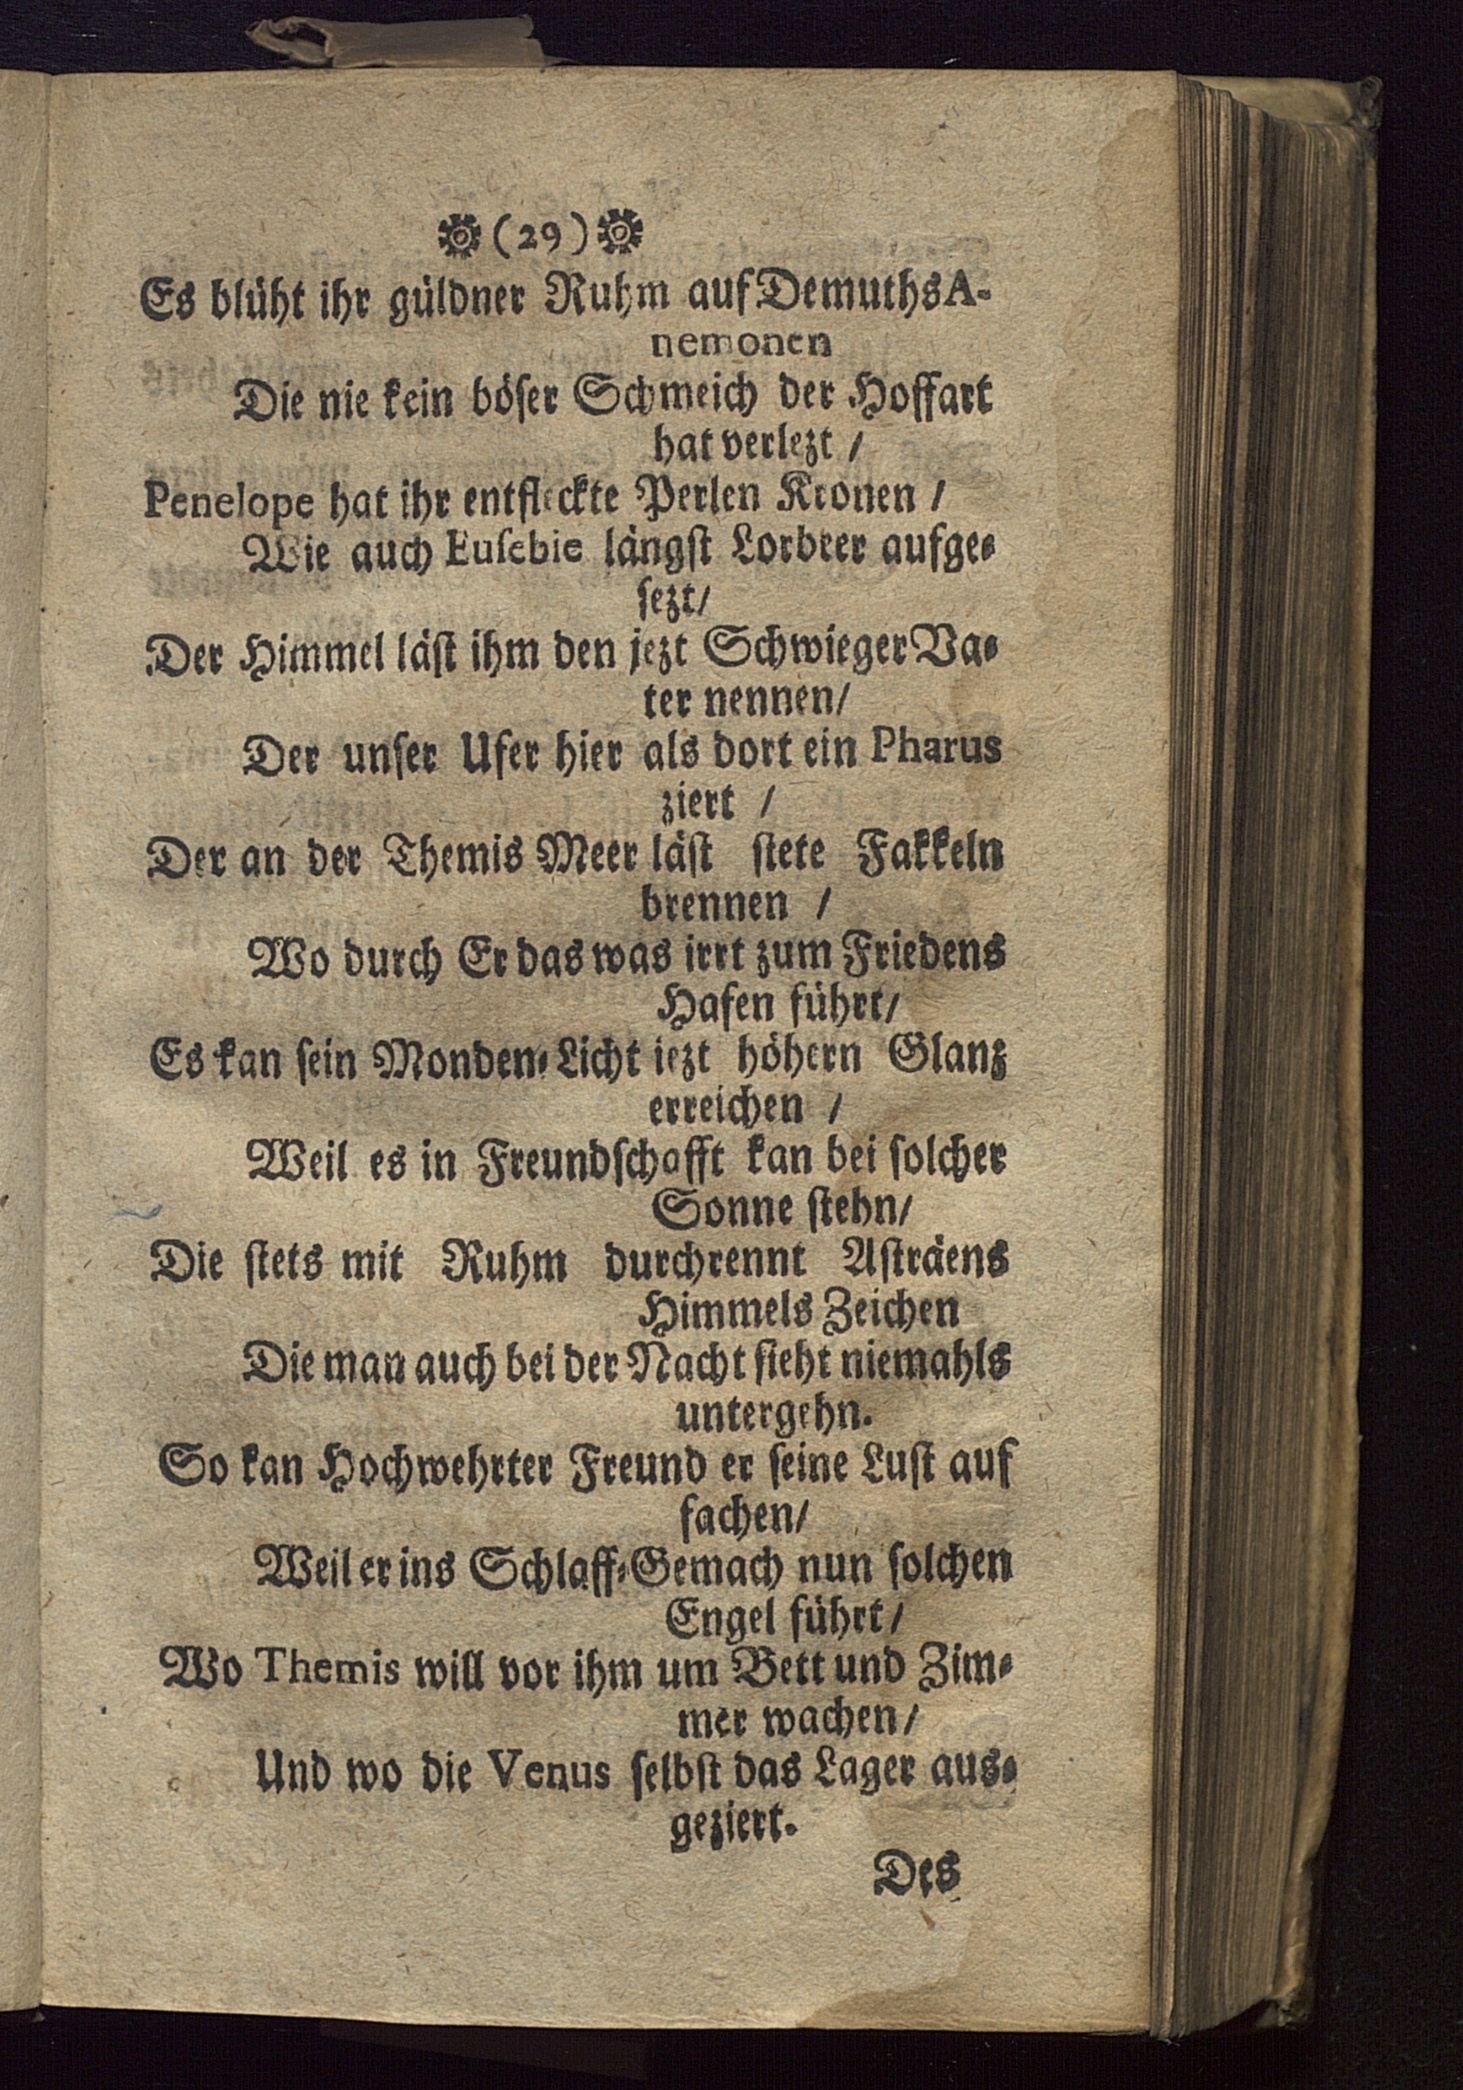 (29)
Es blüht ihr güldner Ruhm auf Demuths A-
nemonen
Die nie kein böser Schmeich der Hoffart
hat verlezt /
Penelope hat ihr entfleckte Perlen Kronen /
Wie auch Eusebie längst Lorbeer aufge-
sezt/
Der Himmel läst ihm den jezt Schwieger Va-
ter nennen/
Der unser Ufer hier als dort ein Pharus
ziert /
Der an der Themis Meer läst stete Fakkeln
brennen /
Wo durch Er das was irrt zum Friedens
Hafen führt/
Es kan sein Monden-Licht jezt höhern Glanz
erreichen /
Weil es in Freundschafft kan bei solcher
Sonne stehn/
Die stets mit Ruhm durchrennt Asträens
Himmels Zeichen
Die man auch bei der Nacht sieht niemahls
untergehn.
So kan Hochwehrter Freund er seine Lust auf
fachen/
Weil er ins Schlaff-Gemach nun solchen
Engel führt/
Wo Themis will vor ihm um Bett und Zim-
mer wachen/
Und wo die Venus selbst das Lager aus-
geziert.
Des